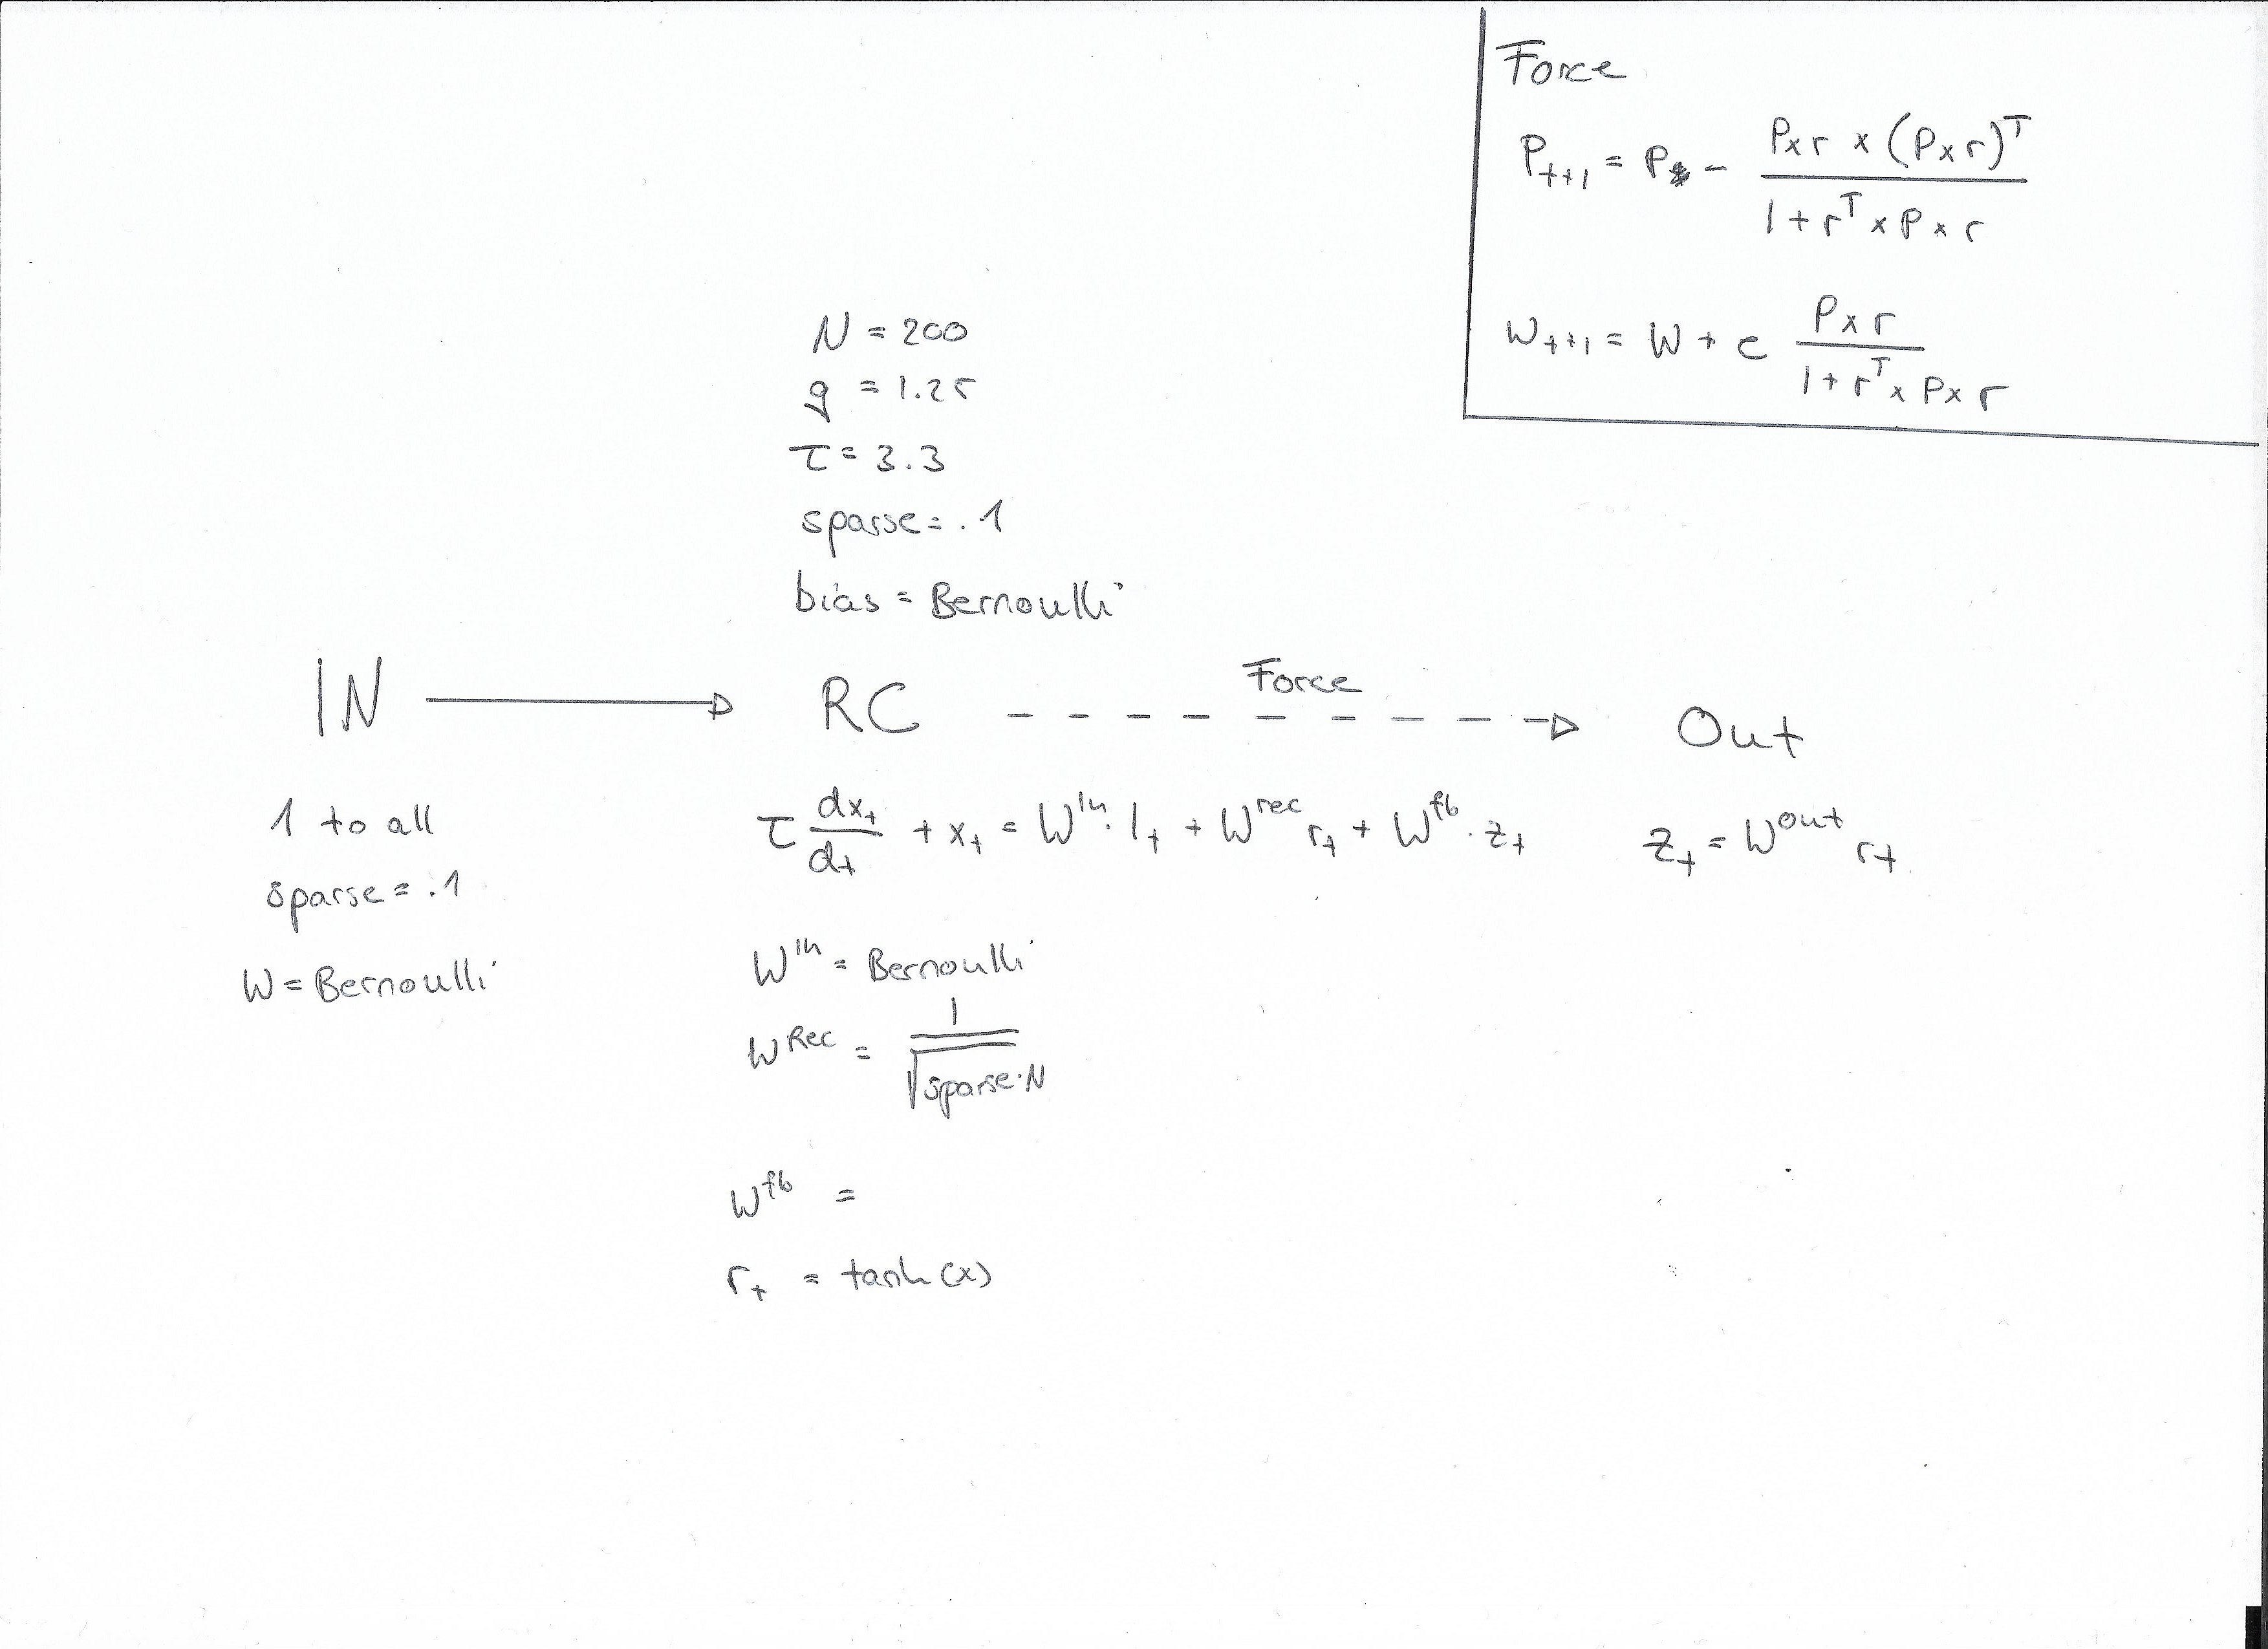 Force
P_{t+1} = P - \frac{P x r x (P x r)^T}{1 + r^T x P x r}
W_{t+1} = W + e \frac{P x r}{1 + r^T x P x r}
N = 200
g = 1.25
τ = 3.3
sparse = .1
bias = Bernoulli
IN RC Force Out
1 to all
sparse = .1
W = Bernoulli
τ \frac{dx_t}{dt} + x_t = W^{in} · I_t + W^{rec} r_t + W^{fb} · z_t
W^{in} = Bernoulli
W^{Rec} = \frac{1}{\sqrt{sparse · N}}
W^{fb} =
r_t = tanh(x)
z_t = W^{out} r_t